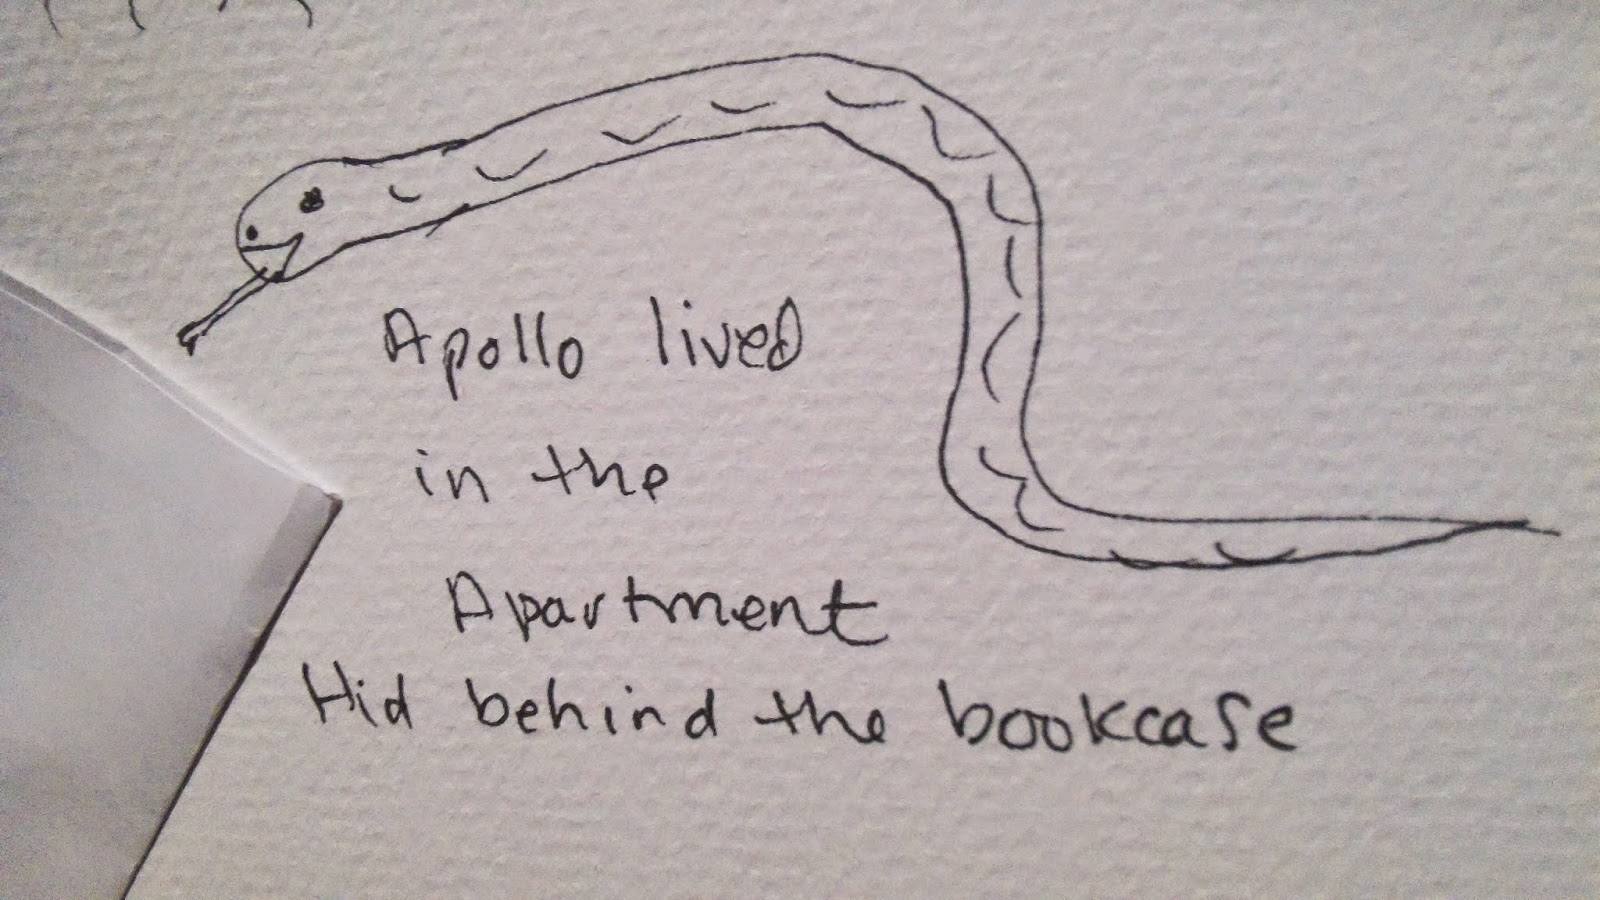 Apollo lived
in the
Apartment
Hid behind the bookcase